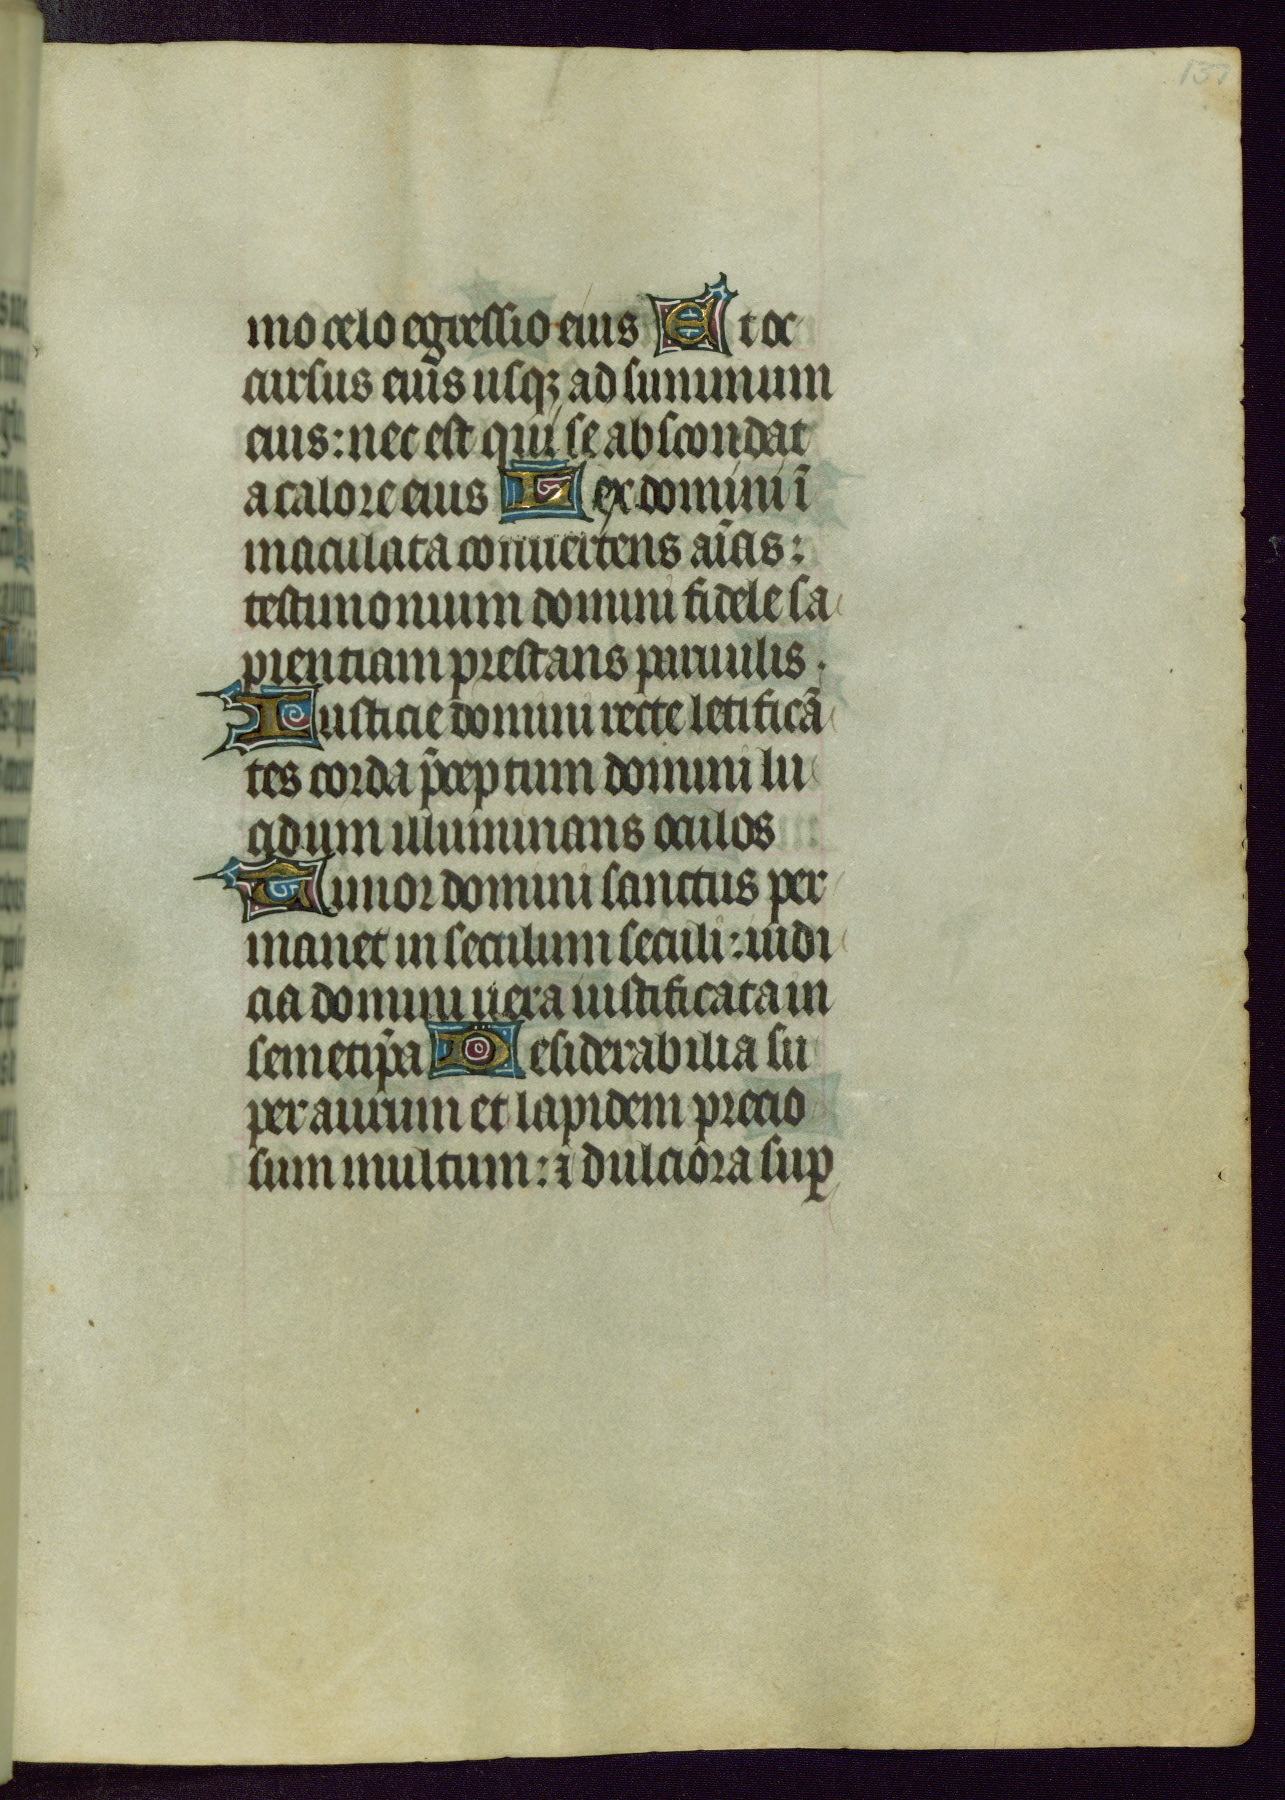 137
mo celo egressio eius Et oc
cursus eius usqꝫ ad summum
eius: nec est qui se abscondat
a calore eius Lex domini ī
maculata conuertens aīas:
testimonium domini fidele sa
pientiam prestans paruulis.
Iusticie domini recte letificā
tes corda p̄ceptum domini lu
cidum illuminans oculos
Timor domini sanctus per
manet in seculum seculi: iudi
cia domini uera iustificata in
semetip̄a Desiderabilia su
per aurum et lapidem precio
sum multum: ⁊ dulciora suꝑ